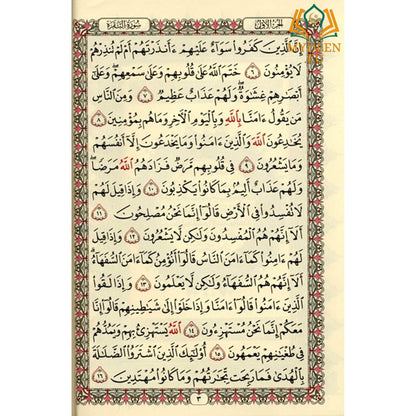 سُورَةُ البَقَرَةِ
الجُزْءُ الأَوَّلُ
إِنَّ ٱلَّذِينَ كَفَرُوا۟ سَوَآءٌ عَلَيْهِمْ ءَأَنذَرْتَهُمْ أَمْ لَمْ تُنذِرْهُمْ
لَا يُؤْمِنُونَ ٦ خَتَمَ ٱللَّهُ عَلَىٰ قُلُوبِهِمْ وَعَلَىٰ سَمْعِهِمْ ۖ وَعَلَىٰٓ
أَبْصَٰرِهِمْ غِشَٰوَةٌ ۖ وَلَهُمْ عَذَابٌ عَظِيمٌ ٧ وَمِنَ ٱلنَّاسِ
مَن يَقُولُ ءَامَنَّا بِٱللَّهِ وَبِٱلْيَوْمِ ٱلْءَاخِرِ وَمَا هُم بِمُؤْمِنِينَ ٨
يُخَٰدِعُونَ ٱللَّهَ وَٱلَّذِينَ ءَامَنُوا۟ وَمَا يَخْدَعُونَ إِلَّآ أَنفُسَهُمْ
وَمَا يَشْعُرُونَ ٩ فِى قُلُوبِهِم مَّرَضٌ فَزَادَهُمُ ٱللَّهُ مَرَضًا ۖ
وَلَهُمْ عَذَابٌ أَلِيمٌۢ بِمَا كَانُوا۟ يَكْذِبُونَ ١٠ وَإِذَا قِيلَ لَهُمْ
لَا تُفْسِدُوا۟ فِى ٱلْأَرْضِ قَالُوٓا۟ إِنَّمَا نَحْنُ مُصْلِحُونَ ١١
أَلَآ إِنَّهُمْ هُمُ ٱلْمُفْسِدُونَ وَلَٰكِن لَّا يَشْعُرُونَ ١٢ وَإِذَا قِيلَ
لَهُمْ ءَامِنُوا۟ كَمَآ ءَامَنَ ٱلنَّاسُ قَالُوٓا۟ أَنُؤْمِنُ كَمَآ ءَامَنَ ٱلسُّفَهَآءُ ۗ
أَلَآ إِنَّهُمْ هُمُ ٱلسُّفَهَآءُ وَلَٰكِن لَّا يَعْلَمُونَ ١٣ وَإِذَا لَقُوا۟
ٱلَّذِينَ ءَامَنُوا۟ قَالُوٓا۟ ءَامَنَّا وَإِذَا خَلَوْا۟ إِلَىٰ شَيَٰطِينِهِمْ قَالُوٓا۟ إِنَّا
مَعَكُمْ إِنَّمَا نَحْنُ مُسْتَهْزِءُونَ ١٤ ٱللَّهُ يَسْتَهْزِئُ بِهِمْ وَيَمُدُّهُمْ
فِى طُغْيَٰنِهِمْ يَعْمَهُونَ ١٥ أُو۟لَٰٓئِكَ ٱلَّذِينَ ٱشْتَرَوُا۟ ٱلضَّلَٰلَةَ
بِٱلْهُدَىٰ فَمَا رَبِحَت تِّجَٰرَتُهُمْ وَمَا كَانُوا۟ مُهْتَدِينَ ١٦
٣